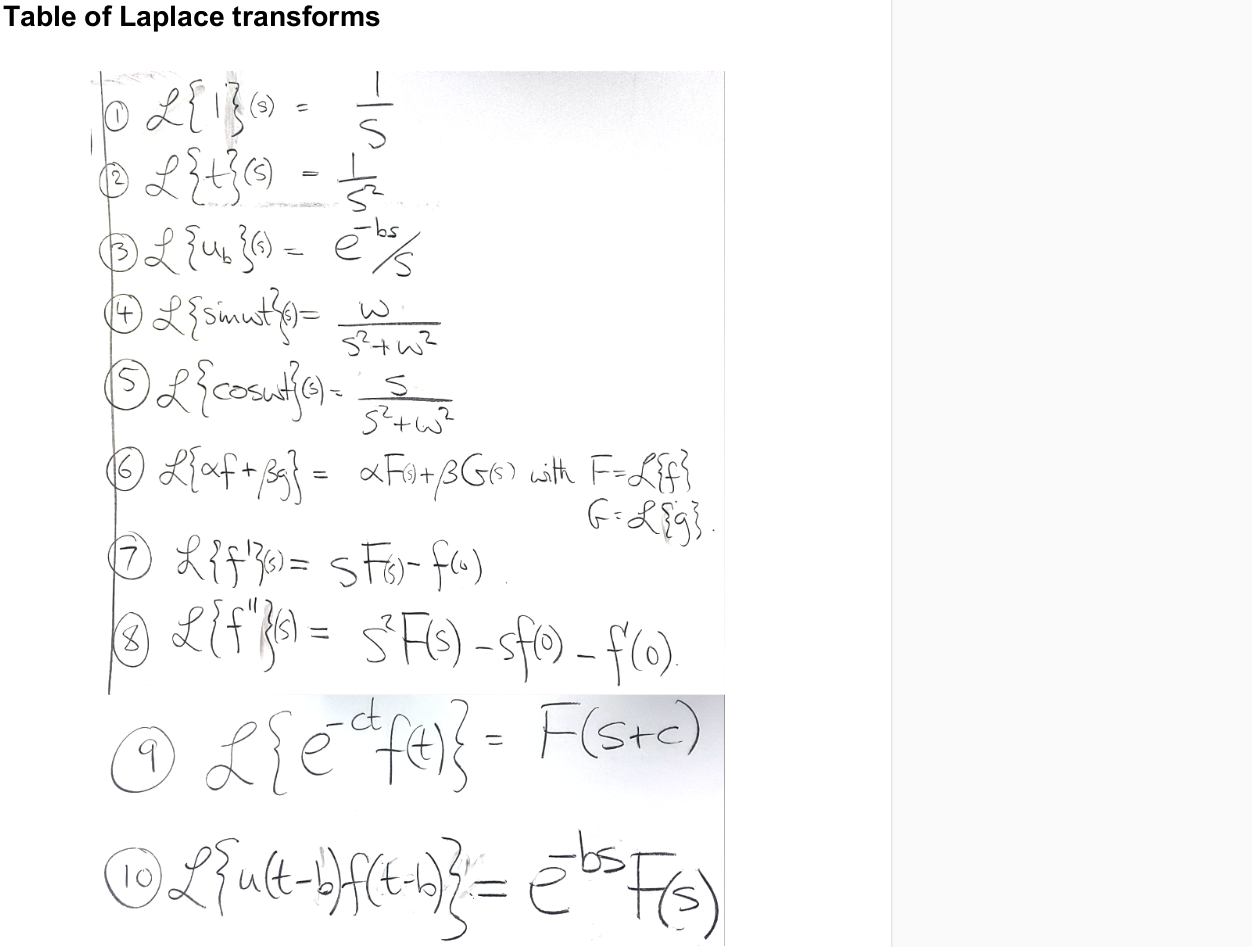 Table of Laplace transforms
① ℒ{1}(s) = 1/s
② ℒ{t}(s) = 1/s²
③ ℒ{u_b}(s) = e^{-bs}/s
④ ℒ{sinωt}(s) = ω/(s²+ω²)
⑤ ℒ{cosωt}(s) = s/(s²+ω²)
⑥ ℒ{αf+βg} = αF(s)+βG(s) with F=ℒ{f}
G=ℒ{g}.
⑦ ℒ{f'}(s) = sF(s)-f(0).
⑧ ℒ{f''}(s) = s²F(s)-sf(0)-f'(0).
⑨ ℒ{e^{-ct}f(t)} = F(s+c)
⑩ ℒ{u(t-b)f(t-b)} = e^{-bs}F(s)